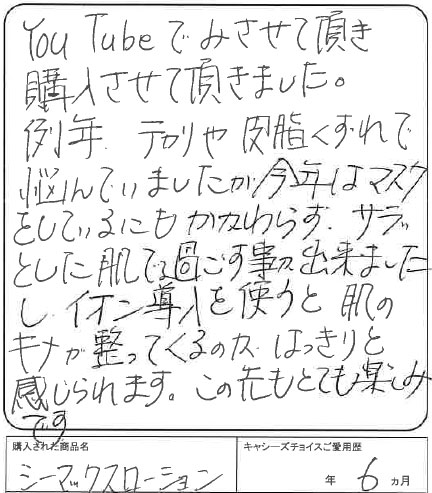 YouTubeでみさせて頂き
購入させて頂きました。
例年、テカリや皮脂くずれで
悩んでいましたが今年はマスク
をしているにもかかわらず、サラッ
とした肌で過ごす事が出来ました
し、イオン導入を使うと肌の
キメが整ってくるのが、はっきりと
感じられます。この先もとても楽しみ
です
購入された商品名
キャシーズチョイスご愛用歴
シーマックスローション
年 6 ヵ月